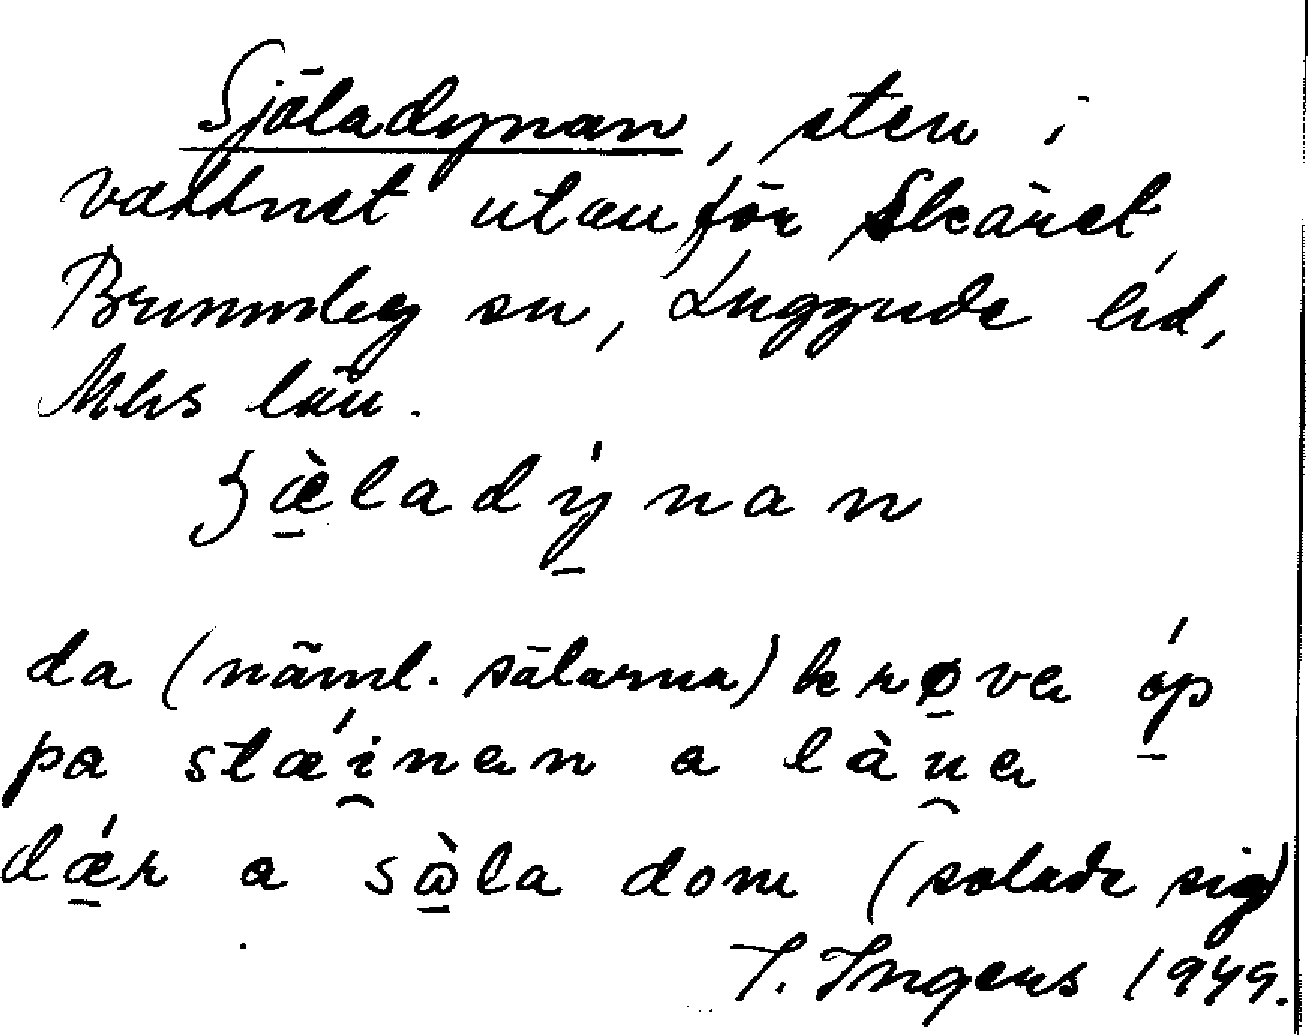 Själadynan, sten i
vattnet utanför Skäret,
Brunnby sn, Luggude hd,
Mhs län.
ʒæ̀ladýnan
da (näml. sälarna) krøva óp
pa stǽinan a làua
dǽr a sòla dom (solade sig)
I. Ingers 1949.